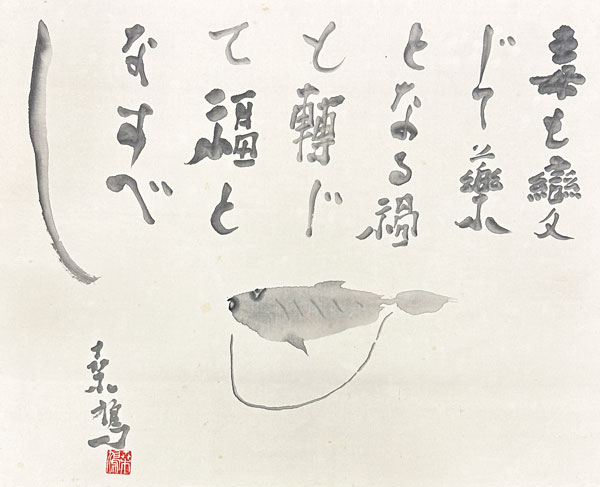 毒も變
じて藥
となる禍
も轉じ
て福と
なすべ
し
桑鳩